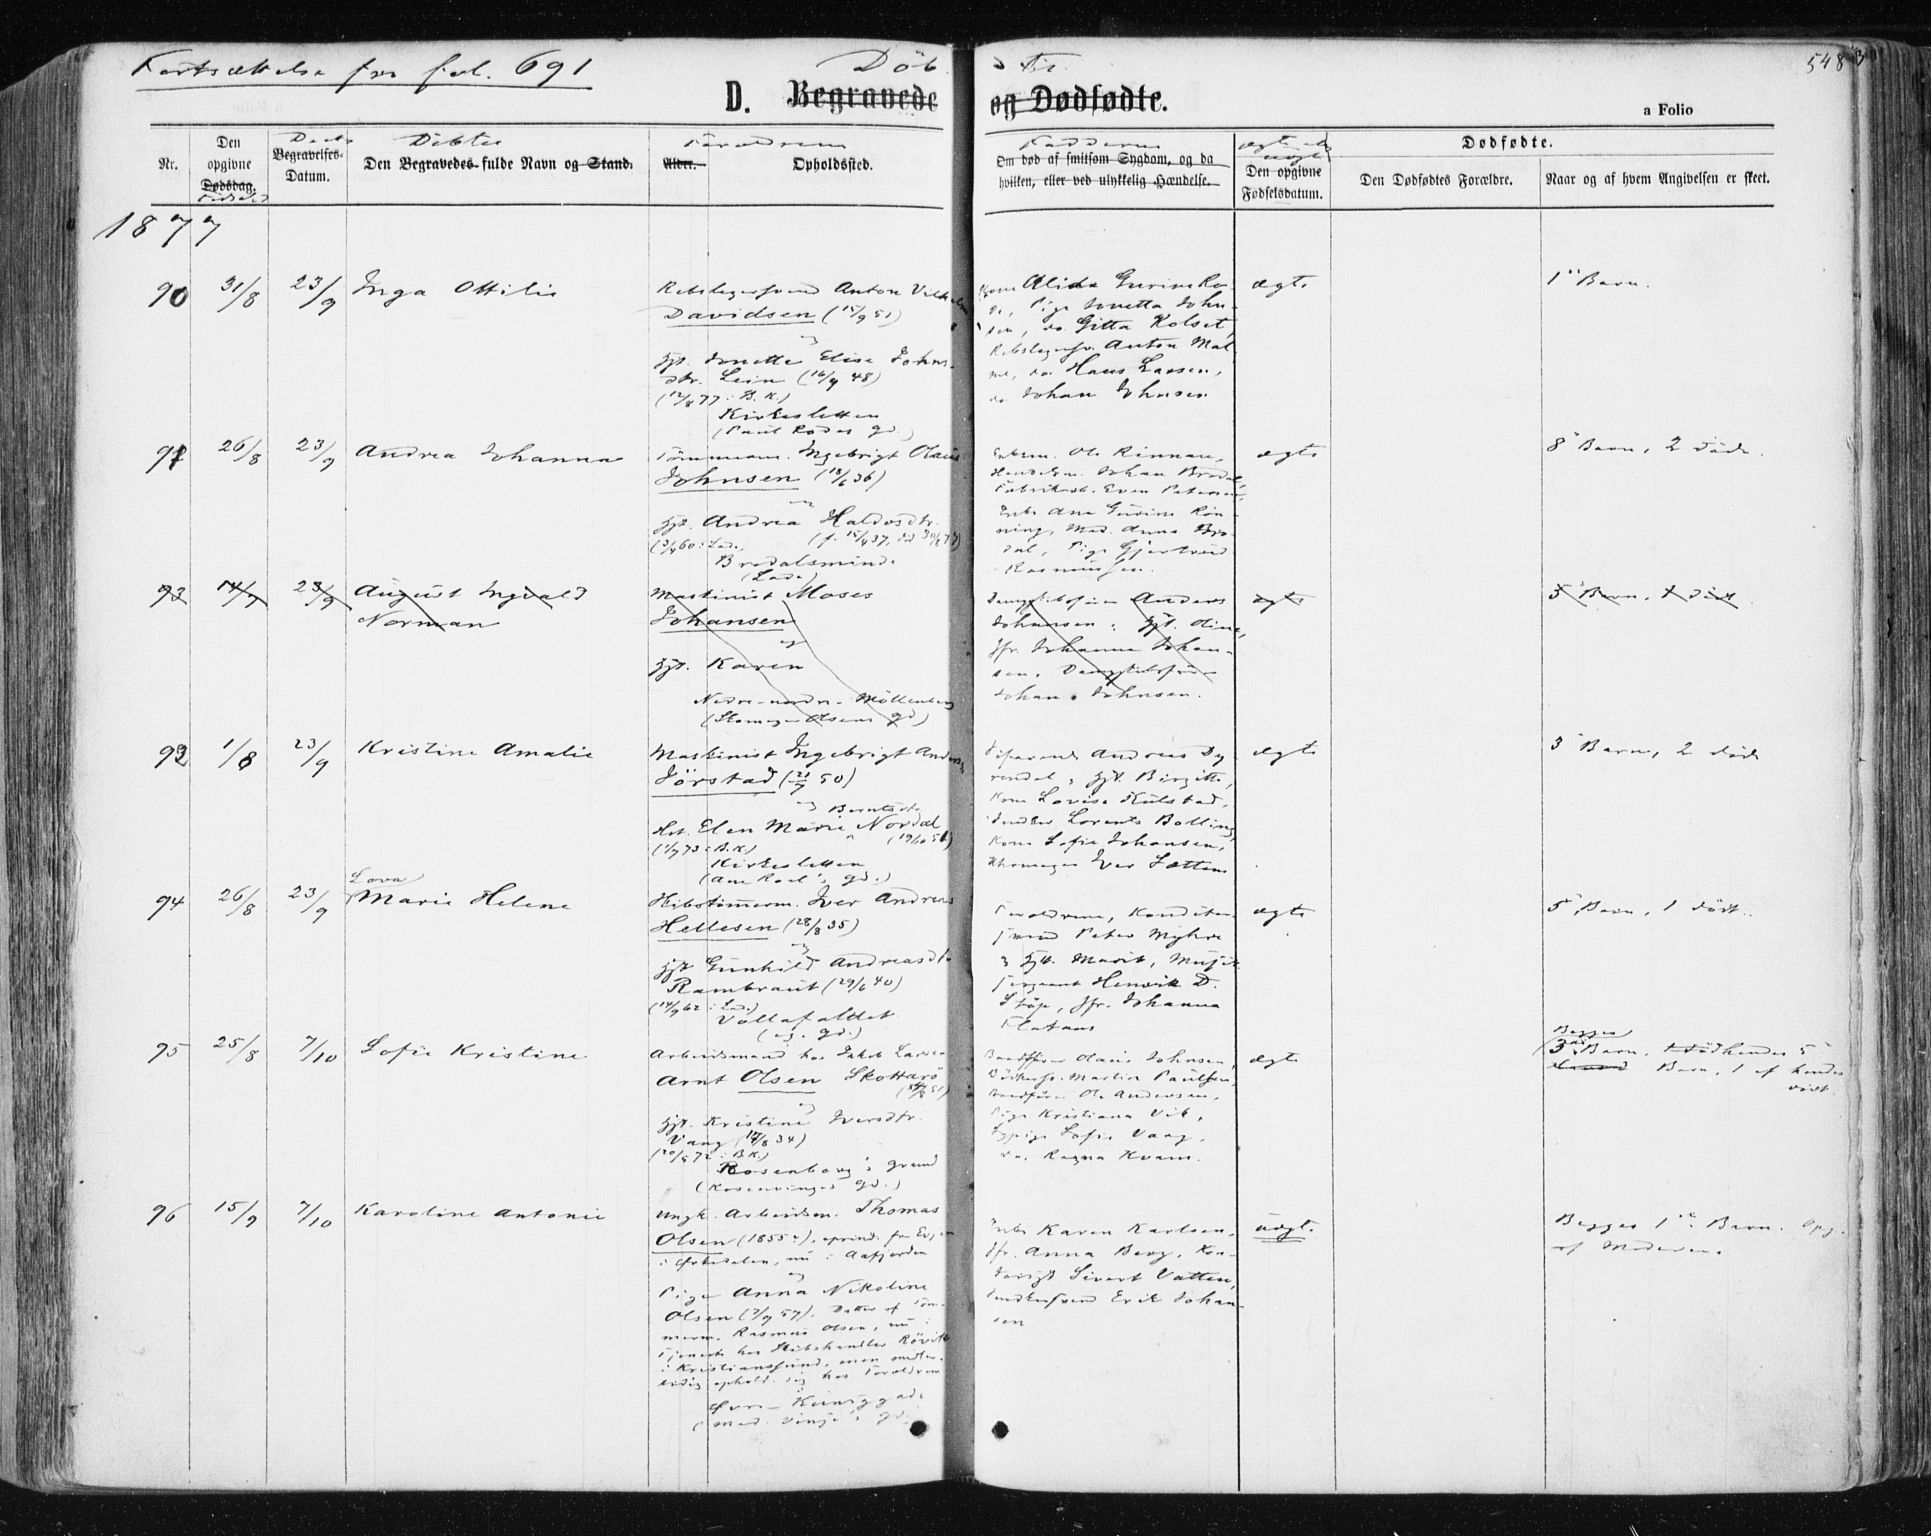 Fortsættelse fra fol. 691
Döbte.
548
D. Begravede og Dødfødte.
a Folio
Nr.
Den opgivne Dødsdag.
Fødsels
Daabs
Begravelses-Datum.
Döbtes
Den Begravedes fulde Navn og Stand.
Alder.
Forældrene
Opholdssted.
Fadderne
Om død af smitsom Sygdom, og da
hvilken, eller ved ulykkelig Hændelse.
ægte el. uægte
Den opgivne Fødselsdatum.
Dødfødte.
Den Dødfødtes Forældre.
Naar og af hvem Angivelsen er skeet.
1877
90 31/8 23/9 Inga Ottilie
Rebslagersvend Anton Vilhelm
Davidsen (15/9 51)
og
Hst. Jonette Elise Johns-
dtr. Lein (16/9 48)
(12/8 77 i B. K.)
Kirkesletten
(Paul Rodes Gd.)
Kone Alida Gurine Ro-
de, Pige Jonetta John-
sen, do. Gitta Kolset,
Rebslagersv. Anton Mal-
me, do. Hans Larsen,
do Johan Johnsen
ægte
1ste Barn.
91 26/8 23/9 Andrea Johanna
Tömmerm. Ingebrigt Olaus
Johnsen (18/6 36)
og
Hst. Andrea Haldosdtr.
(3/4 60 i Lade) (f. 15/4 37, død 30/8 77)
Brodalsminde
(Lade)
Enkem. Ole Rinnan,
Handelsm. Johan Brodal,
Fabrikarb. Even Petersen,
Enke Ane Gurine Rön-
ning, Mad. Anna Bro-
dal, Pige Gjertrud
Rasmussen.
ægte
8 Barn, 2 døde.
93 14/7 23/9 August Ingvald
Norman
Maskinist Moses
Johansen
og
Hst. Karen
Nedre-nordre-Möllenberg
(Skomager Olsens Gd)
Dampskibsfører Anders
Johansen, Hst. Oline,
Jfr. Johanna Johan-
sen, Dampskibsfører
Johan Johnsen.
ægte
5 Barn, 1 död.
92 1/8 23/9 Kristine Amalie
Maskinist Ingebrigt Anders.
Jörstad (21/7 50)
og Berntsdtr.
Hst. Elen Marie Nordal
(1/7 73 i B.K.) (19/10 51)
Kirkesletten
(Ane Roels Gd.)
Andreas Dy-
rendal, Hst. Birgitte,
Kone Lovise Kulstad,
Snedker Lorents Bolling,
Kone Sofie Johansen,
Skomager Iver Lætten
ægte
3 Barn, 2 døde
94 26/8 23/9 Lova
Marie Helene
Skibstömmerm. Iver Andreas
Hellesen (28/8 35)
og
Hst. Gunhild Andreasdtr.
Rambraut (29/6 40)
(14/9 62 i Lade)
Vollafaldet
(eg. Gd.)
Forældrene, Konditor-
svend Peter Myhre
og Hst. Marit, Musik-
sergeant Henrik D.
Stöp, Jfr. Johanna
Flataas
ægte
5 Barn, 1 dødt.
95 25/8 7/10 Sofie Kristine
Arbeidsmand hos Jakob Larsen
Arnt Olsen Skottarö
og
Hst. Kristine Iversdtr.
Vang (17/8 34)
(20/5 72 i B.K.)
Rosenborg's Grund
(Rosenvinges Gd.)
Olaus Johnsen,
Bödkersv. Martin Paulsen,
Ole Andersen,
Pige Kristiana Vik,
Sypige Sofie Vaag,
do. Ragna Kvam.
ægte
Begges
3die Barn, hendes 5
Barn, 1 af hendes
dødt.
96 15/9 7/10 Karoline Antonie
Ungk. Arbeidsm. Thomas
Olsen (1855), oprind. fra Evjen
i Ørkedalen, nu i Aafjorden
og
Pige Anna Nikoline
Olsen (2/9 57), Datter af Töm-
merm. Rasmus Olsen, nu i
Tjeneste hos Skibshandler Rövik
i Kristianssund, men midler-
tidig ophold. sig hos Forældrene
Övre-Kuniggade
(Mad. Vinje's Gd.)
Enke Karen Karlsen,
Jfr. Anna Berg, Kon-
torist Sivert Vatten,
Snedkersvend Erik Johan-
sen
uægte
Begges 1ste Barn. Opg.
af Moderen.